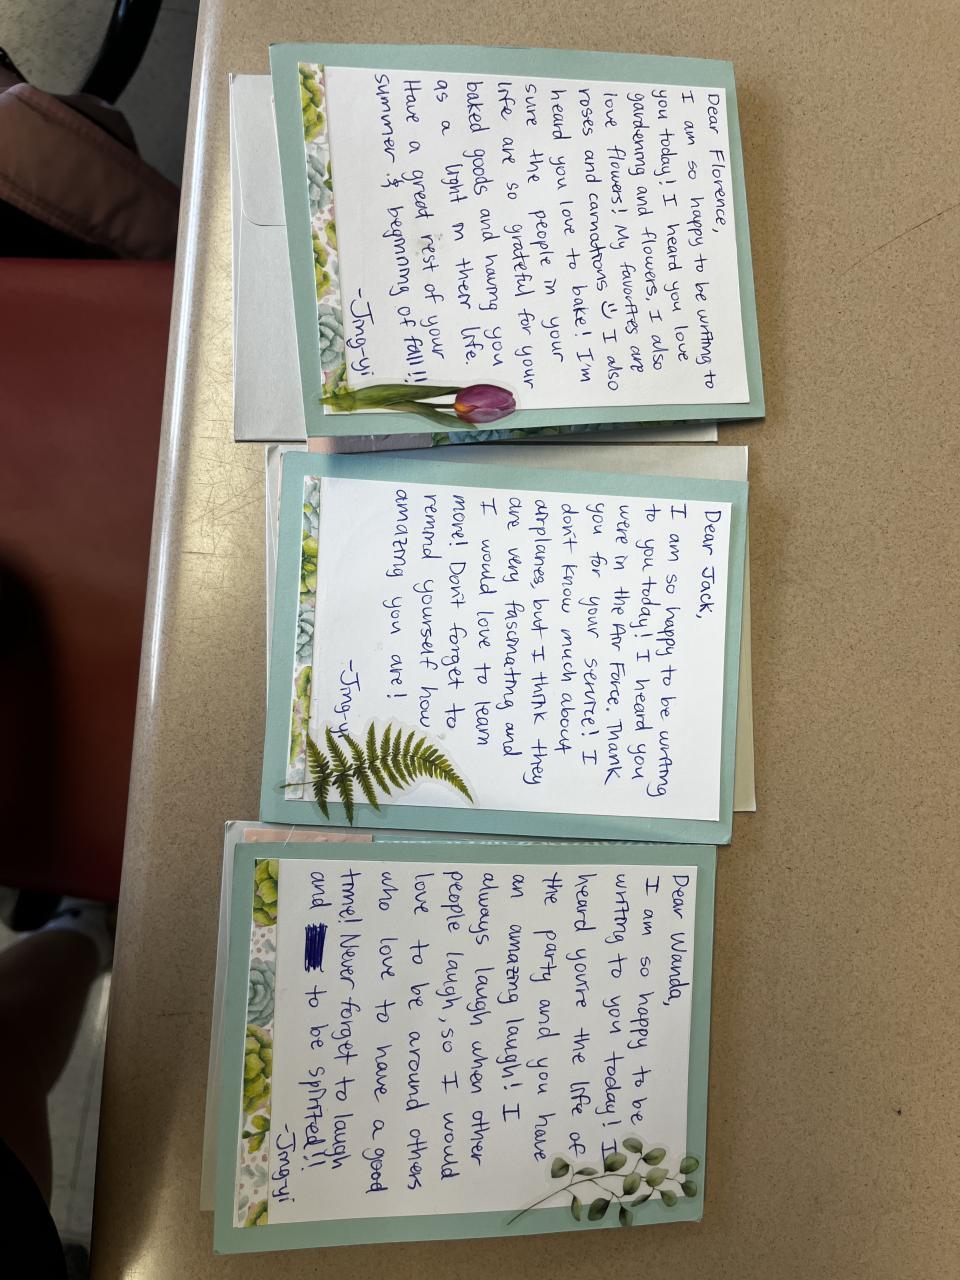 Dear Florence,
I am so happy to be writing to
you today! I heard you love
gardening and flowers. I also
love flowers! My favorites are
roses and carnations :) I also
heard you love to bake! I'm
sure the people in your
life are so grateful for your
baked goods and having you
as a light in their life.
Have a great rest of your
summer & beginning of fall!!
-Jing-yi
Dear Jack,
I am so happy to be writing
to you today! I heard you
were in the Air Force. Thank
you for your service! I
don't know much about
airplanes, but I think they
are very fascinating and
I would love to learn
more! Don't forget to
remind yourself how
amazing you are!
-Jing-yi
Dear Wanda,
I am so happy to be
writing to you today! I
heard you're the life of
the party and you have
an amazing laugh! I
always laugh when other
people laugh, so I would
love to be around others
who love to have a good
time! Never forget to laugh
and to be spirited!!
-Jing-yi